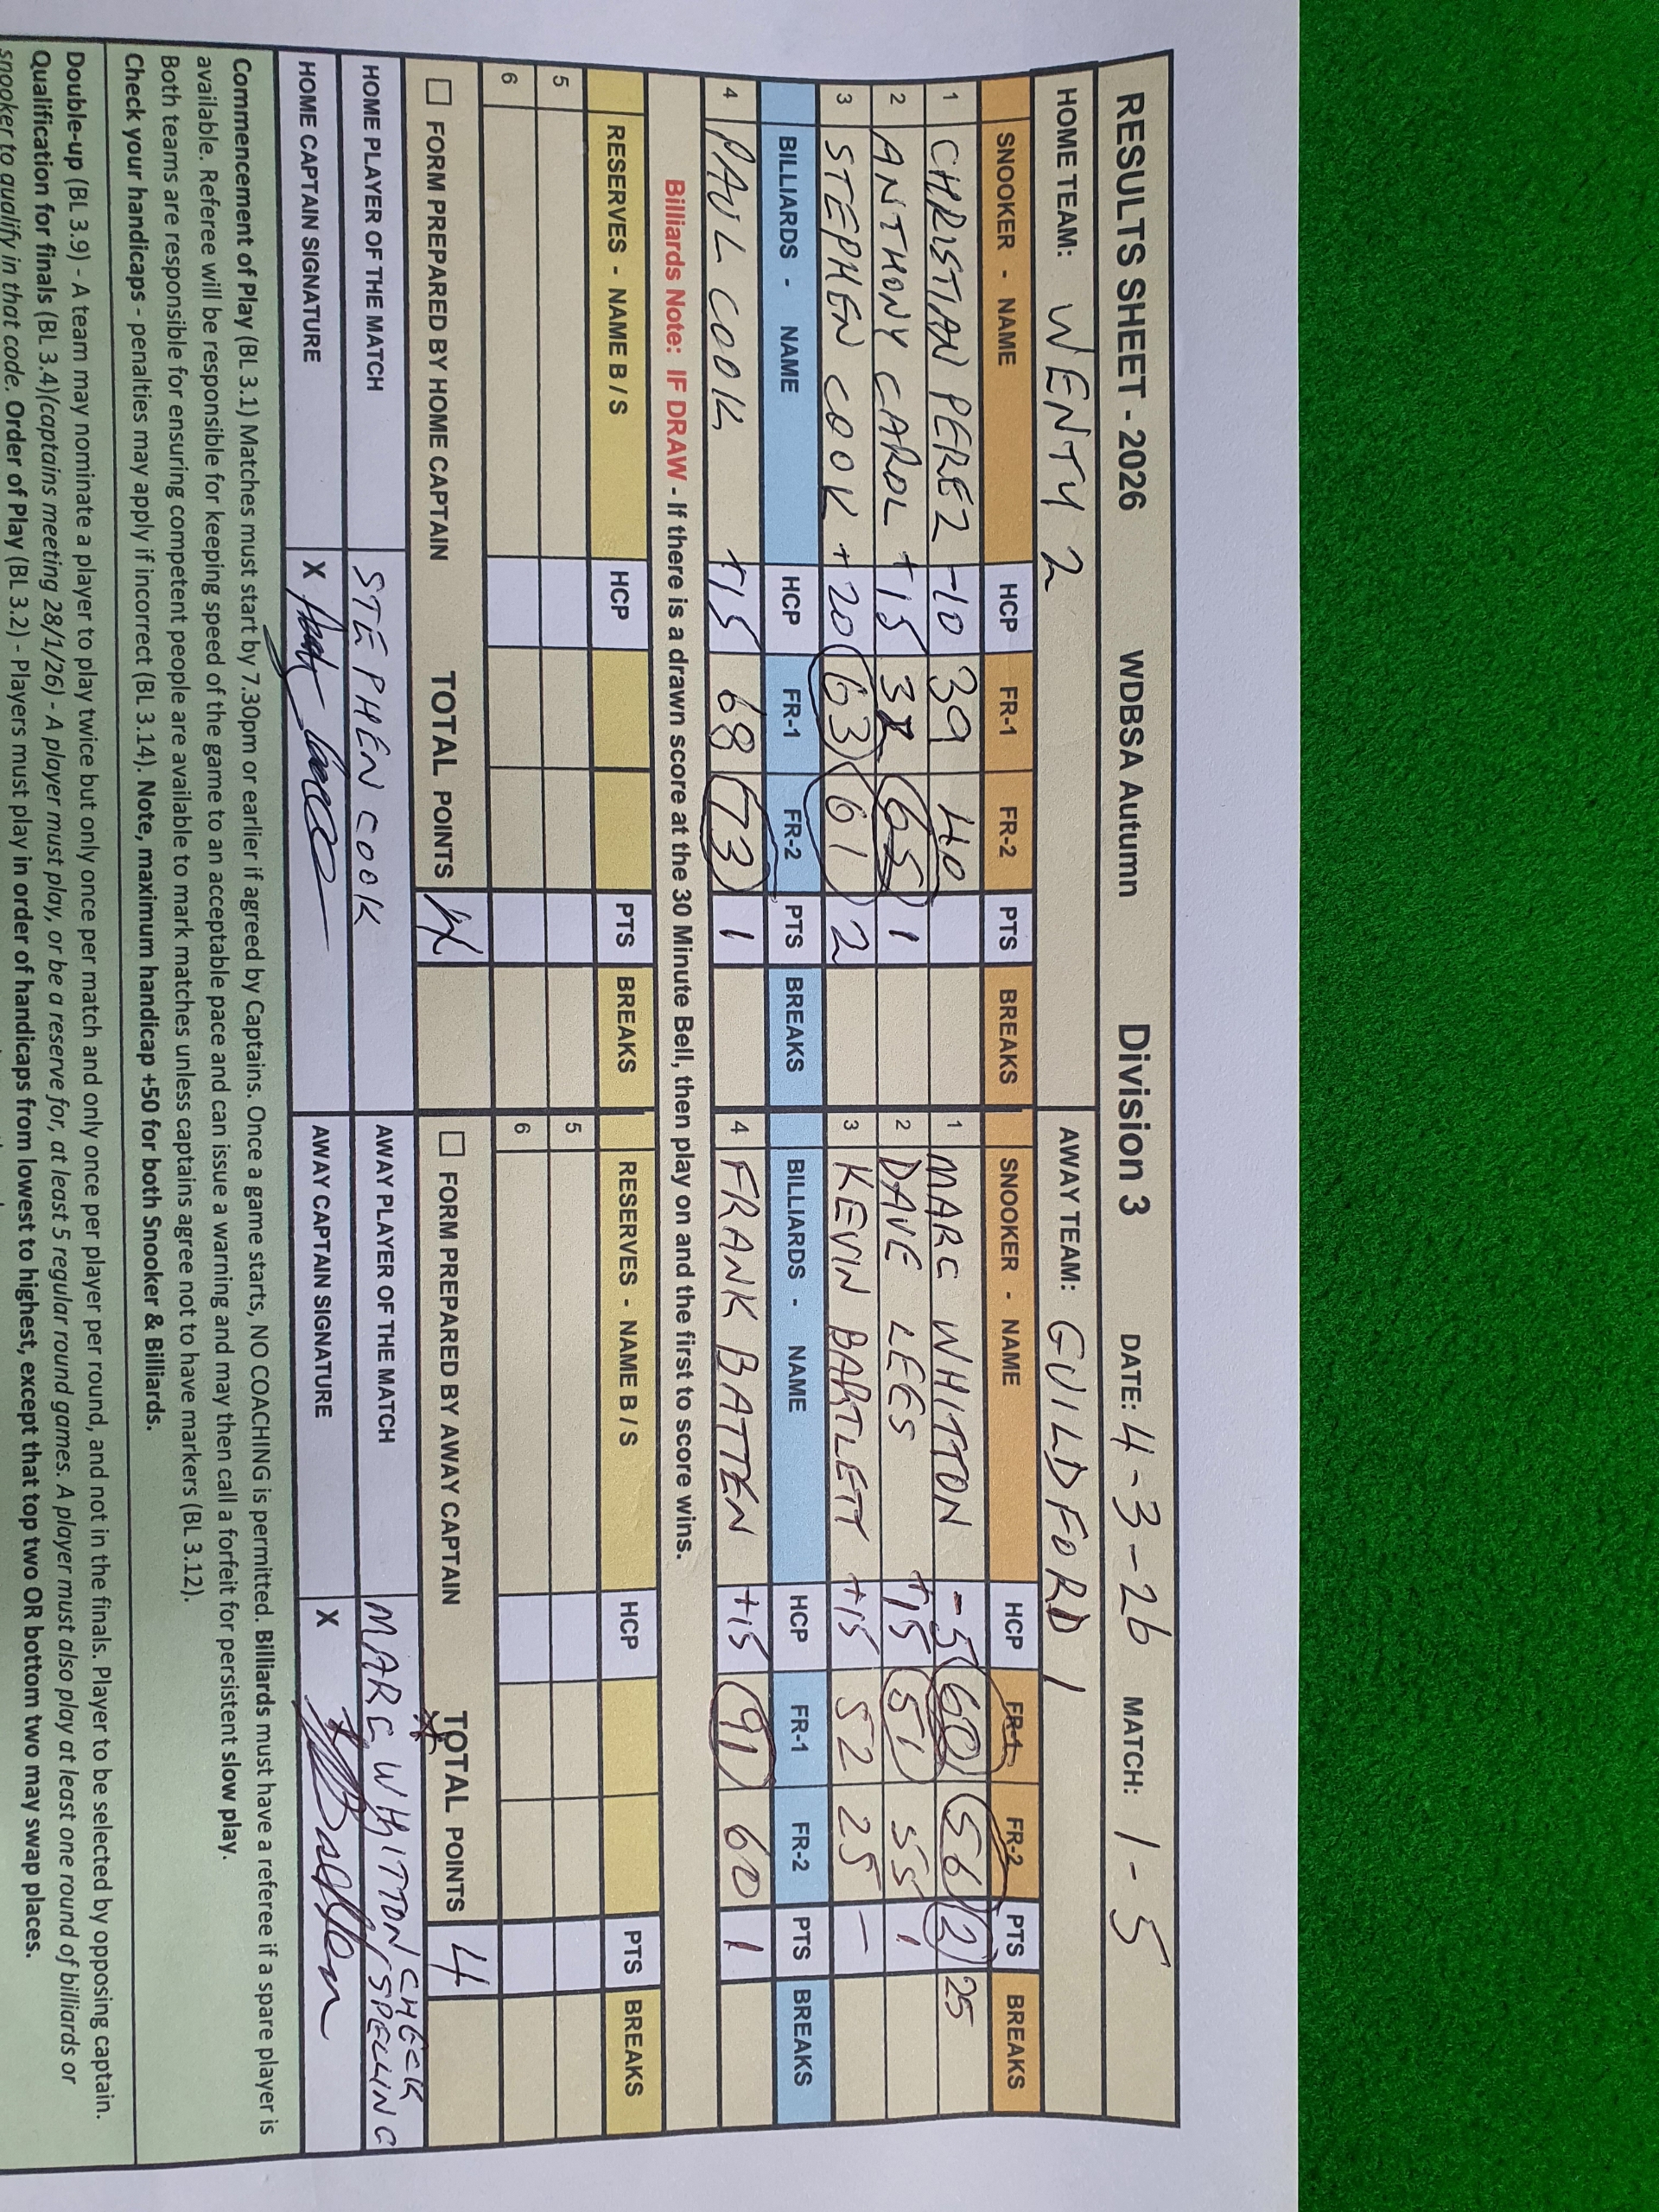 RESULTS SHEET - 2026 WDBSA Autumn Division 3 DATE: 4-3-26 MATCH: 1-5
HOME TEAM: WENTY 2 AWAY TEAM: GUILDFORD 1
SNOOKER - NAME HCP FR-1 FR-2 PTS BREAKS SNOOKER - NAME HCP FR-1 FR-2 PTS BREAKS
1 CHRISTIAN PEREZ -10 39 40 1 MARC WHITTON -5 60 56 2 25
2 ANTHONY CAROL +15 65 1 2 DAVE LEES +15 51 55 1
3 STEPHEN COOK +20 63 61 2 3 KEVIN BARTLETT +15 52 25 -
BILLIARDS - NAME HCP FR-1 FR-2 PTS BREAKS BILLIARDS - NAME HCP FR-1 FR-2 PTS BREAKS
4 PAUL COOK +15 68 73 1 4 FRANK BATTEN +15 91 60 1
Billiards Note: IF DRAW - If there is a drawn score at the 30 Minute Bell, then play on and the first to score wins.
RESERVES - NAME B / S HCP PTS BREAKS RESERVES - NAME B / S HCP PTS BREAKS
5 5
6 6
FORM PREPARED BY HOME CAPTAIN TOTAL POINTS 4 FORM PREPARED BY AWAY CAPTAIN TOTAL POINTS 4
HOME PLAYER OF THE MATCH STEPHEN COOK AWAY PLAYER OF THE MATCH MARC WHITTON CHECK SPELLING
HOME CAPTAIN SIGNATURE X AWAY CAPTAIN SIGNATURE X
Commencement of Play (BL 3.1) Matches must start by 7.30pm or earlier if agreed by Captains. Once a game starts, NO COACHING is permitted. Billiards must have a referee if a spare player is
available. Referee will be responsible for keeping speed of the game to an acceptable pace and can issue a warning and may then call a forfeit for persistent slow play.
Both teams are responsible for ensuring competent people are available to mark matches unless captains agree not to have markers (BL 3.12).
Check your handicaps - penalties may apply if incorrect (BL 3.14). Note, maximum handicap +50 for both Snooker & Billiards.
Double-up (BL 3.9) - A team may nominate a player to play twice but only once per match and only once per player per round, and not in the finals. Player to be selected by opposing captain.
Qualification for finals (BL 3.4)(captains meeting 28/1/26) - A player must play, or be a reserve for, at least 5 regular round games. A player must also play at least one round of billiards or
snooker to qualify in that code. Order of Play (BL 3.2) - Players must play in order of handicaps from lowest to highest, except that top two OR bottom two may swap places.